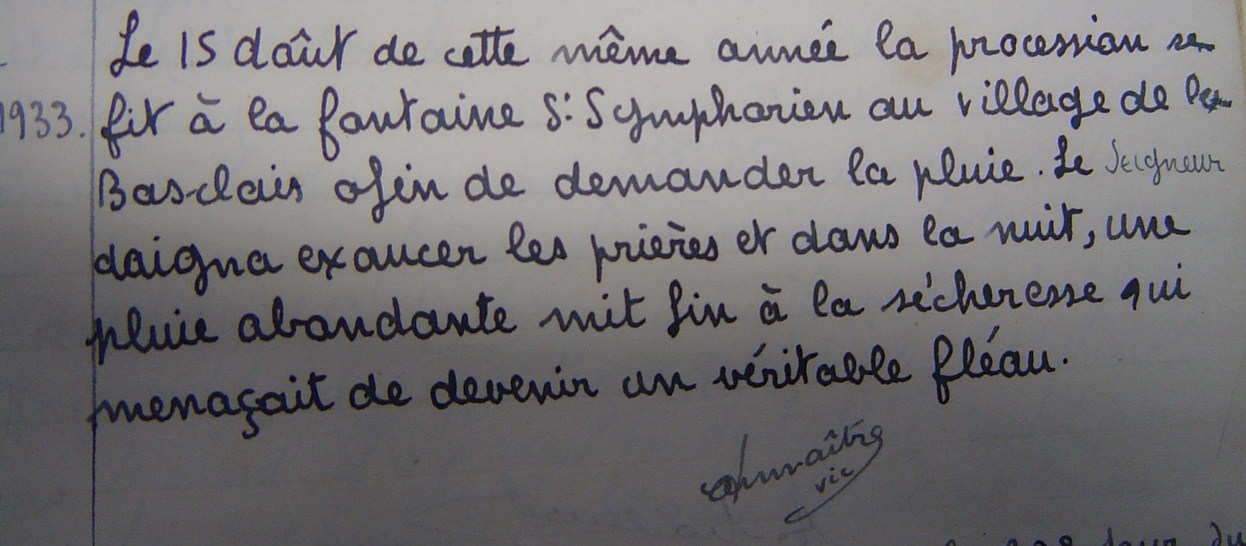 Le 15 daôut de cette même année la procession se
1933. fit à la fontaine St Symphorien au village de
Bas-clais afin de demander la pluie. Le Seigneur
daigna exaucer les prières et dans la nuit, une
pluie abondante mit fin à la sécheresse qui
menaçait de devenir un véritable fléau.
vic